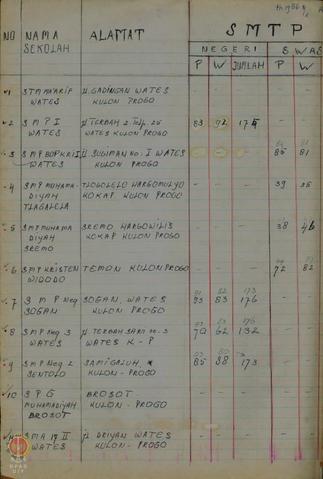 th 1986
S M T P
NO NAMA SEKOLAH ALAMAT NEGERI SWAS
P W JUMLAH P W
1 STM MA'ARIF WATES Jl. GADINGAN WATES KULON PROGO - - - - -
2 SMP I WATES Jl TERBAH 2 Telp. 25 WATES KULON PROGO 83 92 175 - -
3 SMP BOPKRI II WATES Jl SUGIMAN No. I WATES KULON PROGO - - - 85 81
4 SMP MUHAMADIYAH TLOGOLELO HARGOMULYO KOKAP KULON PROGO - - - 39
5 SMP MUHAMADIYAH SREMO SREMO HARGOWILIS KOKAP KULON PROGO - - - 38 46
6 SMP KRISTEN WIDODO TEMON KULON PROGO - - - 72 82
7 SMP Neg SOGAN SOGAN, WATES KULON PROGO 83 176 - -
8 SMP Neg 3 WATES Jl. TERBAH SARI No. 3 WATES K-P 70 62 132 - -
9 SMP Neg 2 SENTOLO SAMIGALUH KULON-PROGO 85 88 173 - -
10 SPG MUHAMADIYAH BROSOT BROSOT KULON-PROGO - - - - -
SMA 17 II WATES Jl DRIYAN WATES KULON-PROGO - - - - -